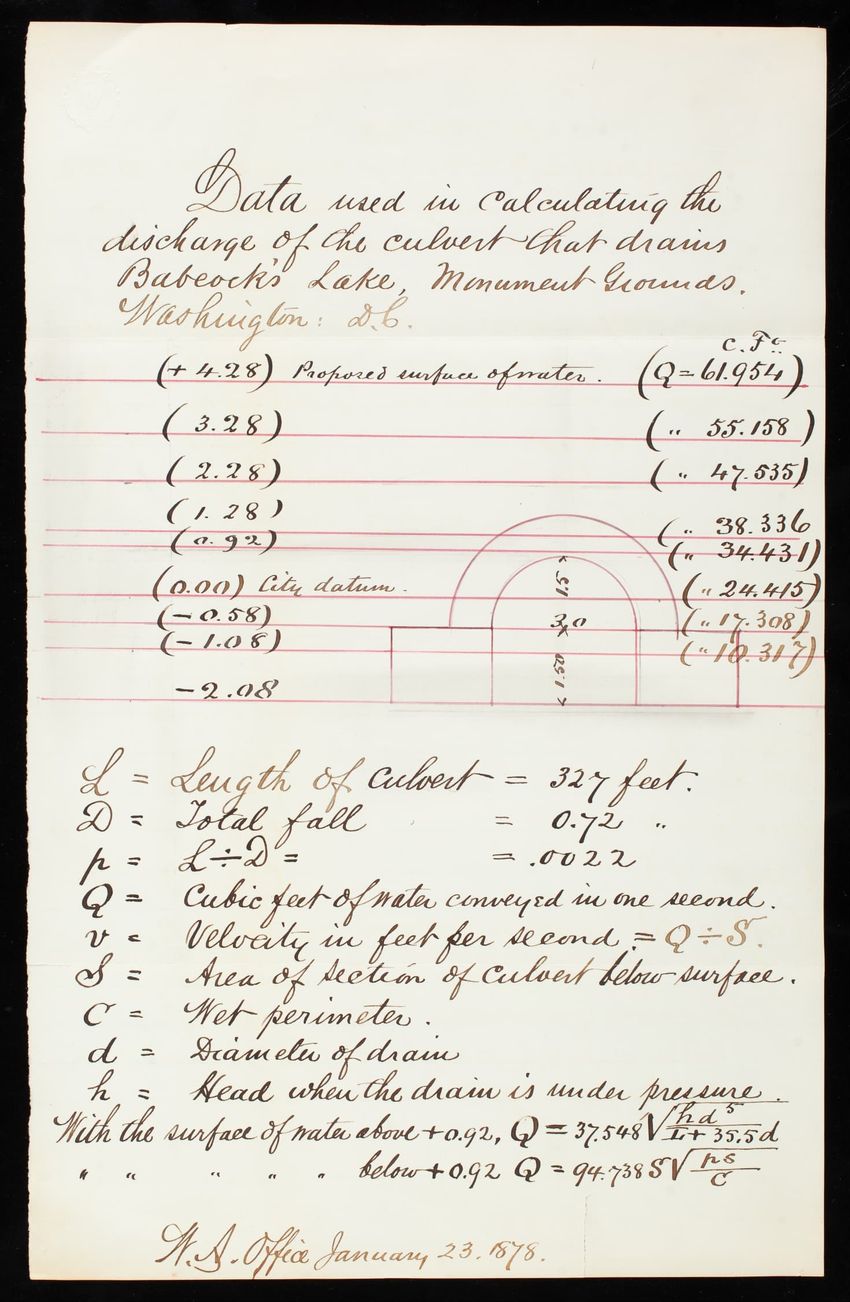 Data used in calculating the
discharge of the culvert that drains
Babcock's Lake, Monument Grounds.
Washington: D.C.
C. Ft.
(+ 4.28) Proposed surface of water. (Q = 61.954)
( 3.28) ( " 55.158 )
( 2.28) ( " 47.535)
( 1.28 ) ( " 38.336
(0.92) ( " 34.431)
(0.00) City datum. ( " 24.415)
(- 0.58) ( " 17.308)
(- 1.08) ( " 10.317)
- 2.08
1.5
3.0
1.50
L = Length of culvert = 327 feet.
D = Total fall = 0.72 "
p = L ÷ D = = .0022
Q = Cubic feet of water conveyed in one second.
v = Velocity in feet per second = Q ÷ S.
S = Area of section of culvert below surface.
C = Wet perimeter.
d = Diameter of drain
h = Head when the drain is under pressure.
With the surface of water above + 0.92, Q = 37.548 √(hd⁵ / L + 35.5d)
" " " " " below + 0.92 Q = 94.738 S √(ps / C)
W. A. Office January 23. 1878.